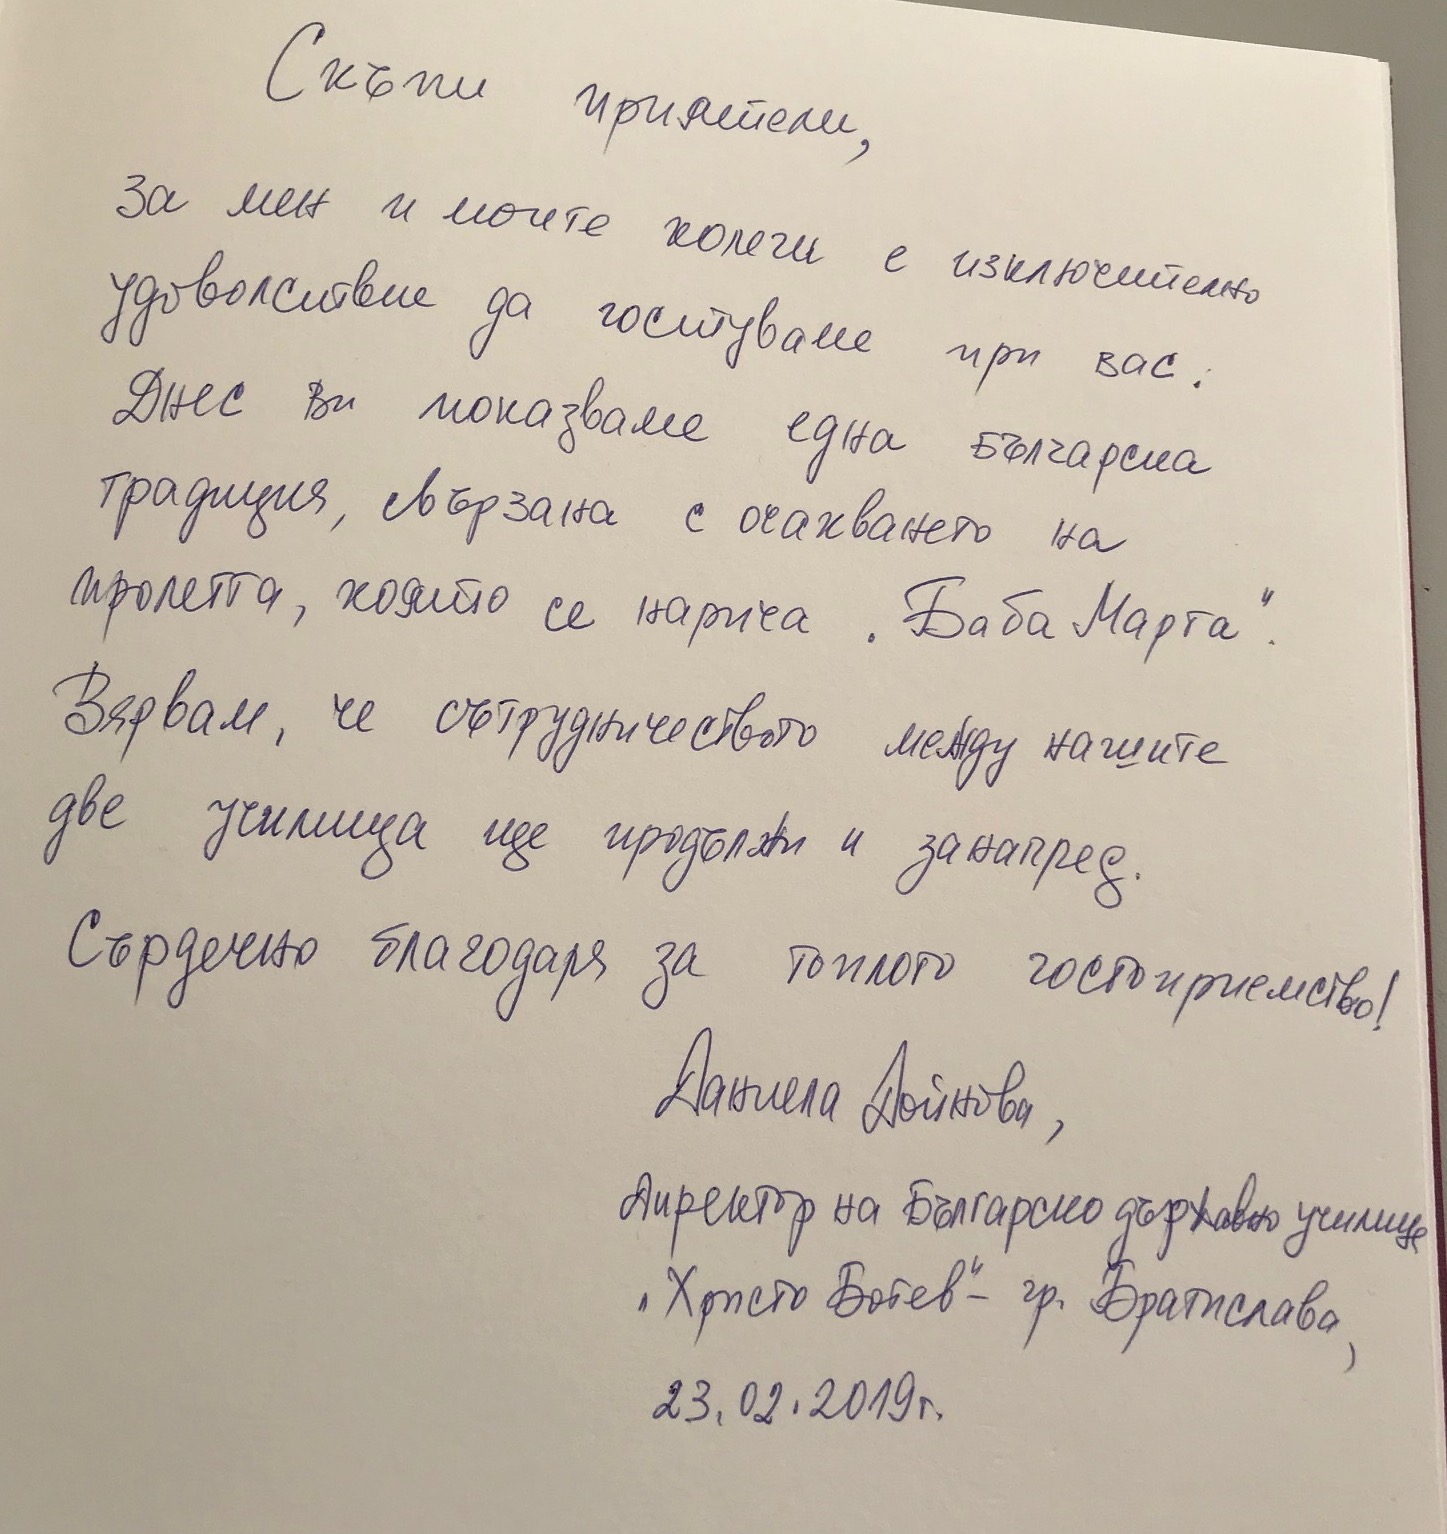 Скъпи приятели,
за мен и моите колеги е изключително
удоволствие да гостуваме при вас.
Днес Ви показваме една българска
традиция, свързана с очакването на
пролетта, която се нарича „Баба Марта".
Вярвам, че сътрудничеството между нашите
две училища ще продължи и занапред.
Сърдечно благодаря за топлото гостоприемство!
Даниела Дойнова,
Директор на Българско държавно училище
„Христо Ботев" – гр. Братислава,
23.02.2019г.